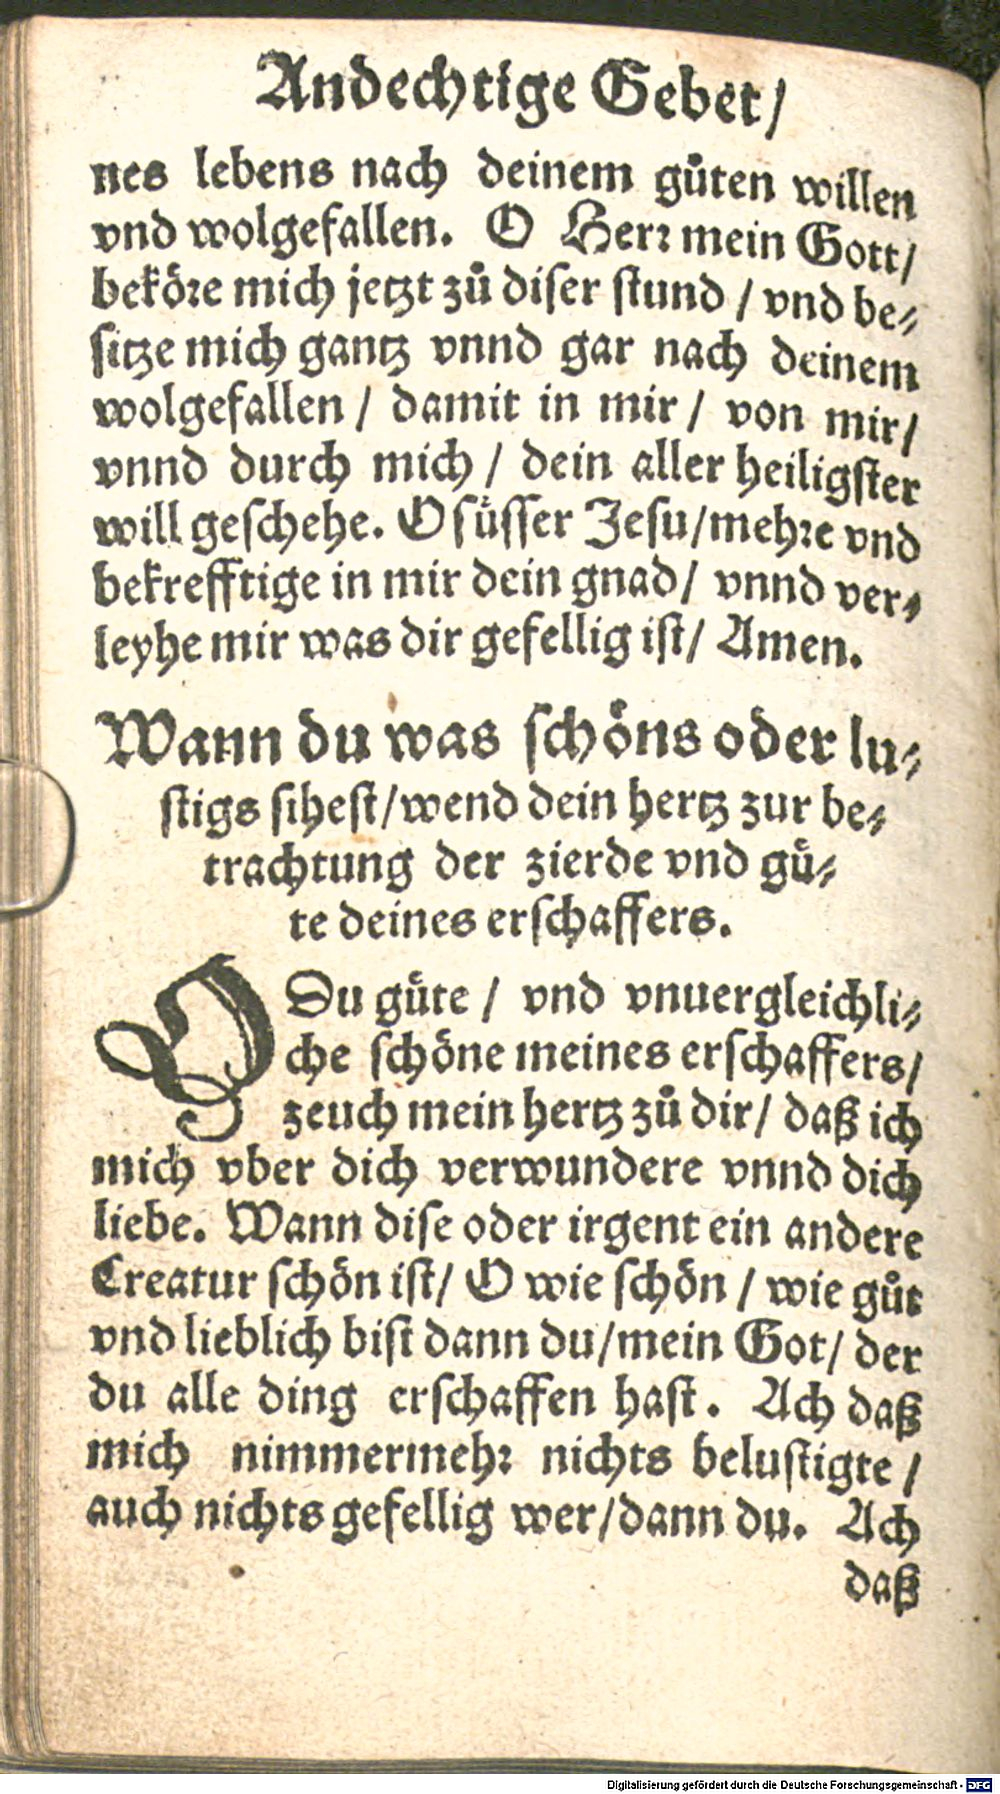 Andechtige Gebet/
nes lebens nach deinem guͤten willen
vnd wolgefallen. O Herr mein Gott/
bekoͤre mich jetzt zuͦ diser stund / vnd be-
sitze mich gantz vnnd gar nach deinem
wolgefallen / damit in mir / von mir/
vnnd durch mich / dein aller heiligster
will geschehe. O suͤsser Jesu/mehre vnd
bekrefftige in mir dein gnad/ vnnd ver-
leyhe mir was dir gefellig ist/ Amen.
Wann du was schoͤns oder lu-
stigs sihest/wend dein hertz zur be-
trachtung der zierde vnd guͤ-
te deines erschaffers.
O Du guͤte / vnd vnuergleichli-
che schoͤne meines erschaffers/
zeuch mein hertz zuͦ dir/ daß ich
mich vber dich verwundere vnnd dich
liebe. Wann dise oder irgent ein andere
Creatur schoͤn ist/ O wie schoͤn / wie guͦt
vnd lieblich bist dann du/mein Got/ der
du alle ding erschaffen hast. Ach daß
mich nimmermehr nichts belustigte /
auch nichts gefellig wer/dann du. Ach
daß
Digitalisierung gefördert durch die Deutsche Forschungsgemeinschaft - DFG